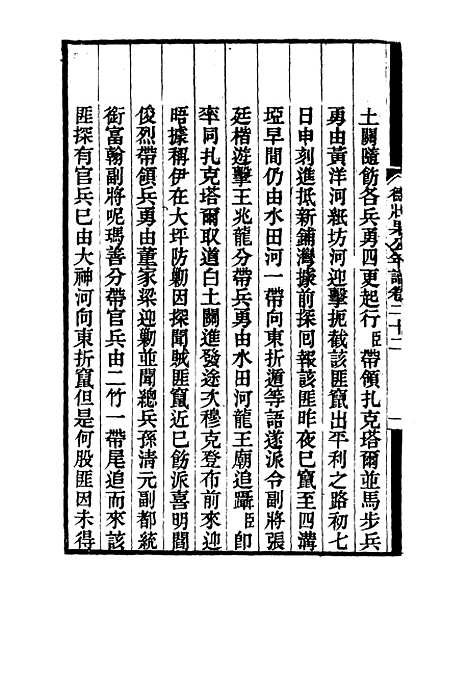 土關隨飭各兵勇四更起行臣帶領扎克塔爾並馬步兵
勇由黃洋河紙坊河迎擊扼截該匪竄出平利之路初七
日申刻進抵新鋪灣據前探回報該匪昨夜已竄至四溝
埡早間仍由水田河一帶向東折遁等語遂派令副將張
廷楷遊擊王兆龍分帶兵勇由水田河龍王廟追躡臣卽
率同扎克塔爾取道白土關進發途次穆克登布前來迎
晤據稱伊在大坪防勦因探聞賊匪竄近已飭派喜明閻
俊烈帶領兵勇由董家梁迎勦並聞總兵孫清元副都統
銜富翰副將呢瑪善分帶官兵由二竹一帶尾追而來該
匪探有官兵已由大神河向東折竄但是何股匪因未得
德壯果公年譜卷二十二